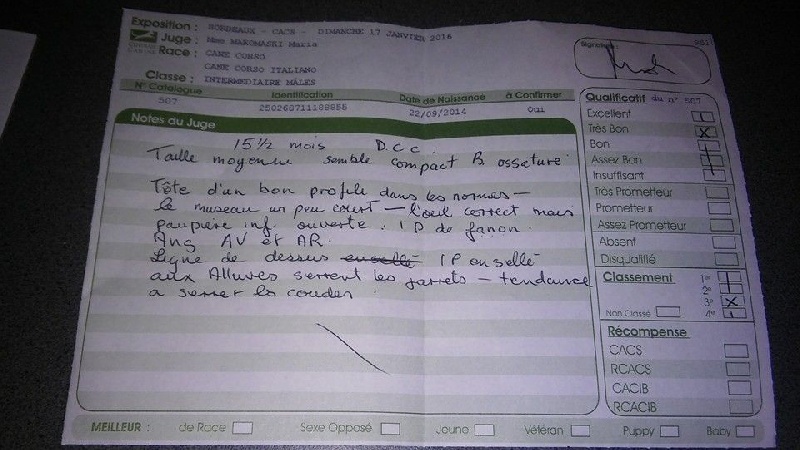 Exposition : BORDEAUX - CACS - DIMANCHE 17 JANVIER 2016
Juge : Mme MAKOWASKI Marie
Race : CANE CORSO
CANE CORSO ITALIANO
Classe : INTERMEDIAIRE MALES
Signature :
N° Catalogue Identification Date de Naissance à Confirmer
507 22/09/2014 Oui
Notes au Juge
15 1/2 mois D.C.C.
Taille moyenne semble compact B. ossature
Tête d'un bon profile dans les normes -
le museau un peu court - l'oeil correct mais
paupière inf. ouverte. 1P de fanon
Ang AV et AR.
Ligne de dessus 1P ensellé
aux Allures serrent les jarrets - tendance
a serrer les coudes
Qualificatif du n° 507
Excellent
Très Bon X
Bon
Assez Bon
Insuffisant
Très Prometteur
Prometteur
Assez Prometteur
Absent
Disqualifié
Classement 1°
2°
3° X
Non Classé 4°
Récompense
CACS
RCACS
CACIB
RCACIB
MEILLEUR : de Race Sexe Opposé Jeune Vétéran Puppy Baby